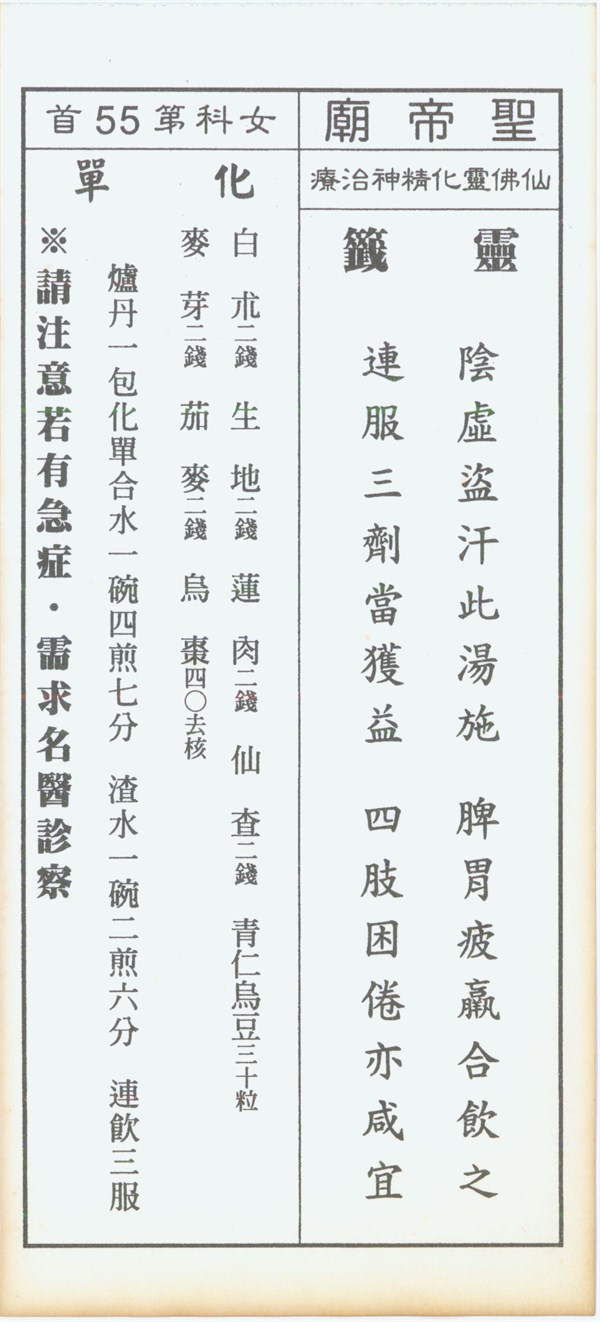 聖帝廟
仙佛靈化精神治療
靈籤
陰虛盜汗此湯施　脾胃疲羸合飲之
連服三劑當獲益　四肢困倦亦咸宜
女科第55首
化單
白朮二錢　生地二錢　蓮肉二錢　仙查二錢　青仁烏豆三十粒
麥芽二錢　茄麥二錢　烏棗四〇去核
爐丹一包化單合水一碗四煎七分　渣水一碗二煎六分　連飲三服
※請注意若有急症・需求名醫診察